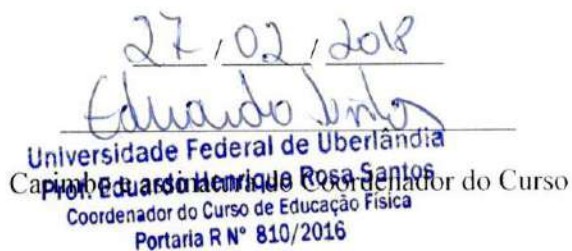 27 / 02 / 2018
Eduardo Santos
Universidade Federal de Uberlândia
Prof. Eduardo Henrique Rosa Santos
Carimbo e assinatura do Coordenador do Curso
Coordenador do Curso de Educação Física
Portaria R N° 810/2016